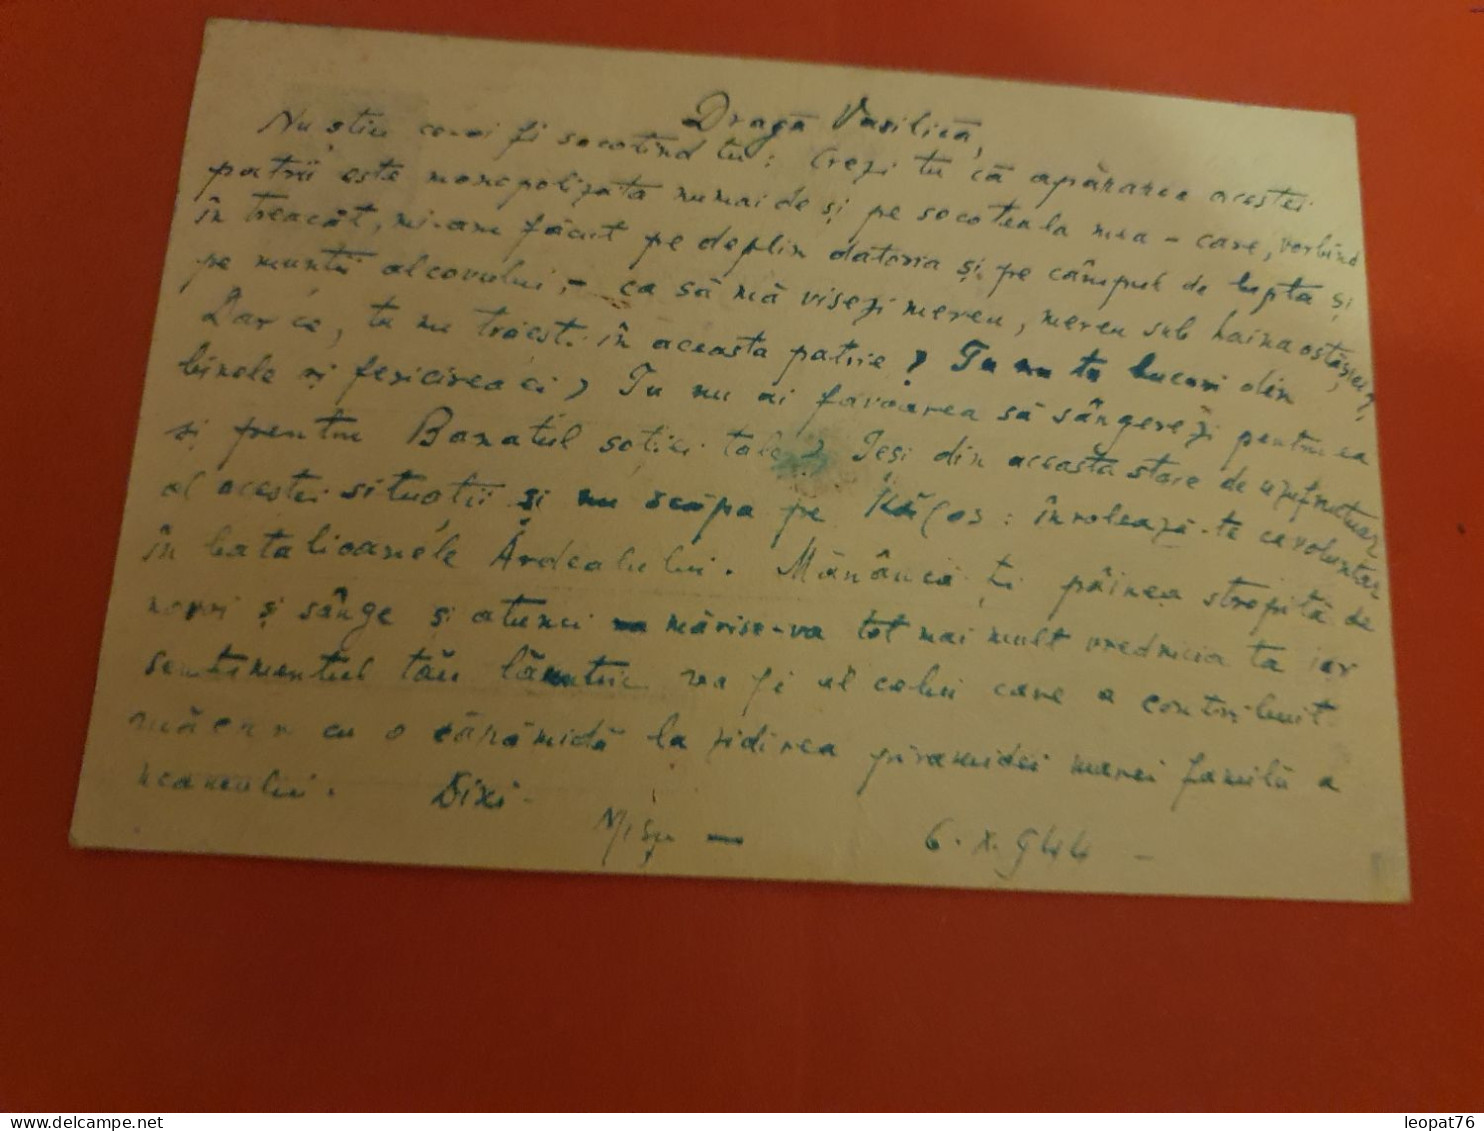 Dragă Vasilică,
Nu știu ce-oi fi socotind tu: Crezi tu că apărarea acestei
patrii este monopolizata numai de și pe socoteala mea - care, vorbind
în treacăt, mi-am făcut pe deplin datoria și pe câmpul de luptă și
pe muntii alcovului, - ca să mă visezi mereu, mereu sub haina ostășiei?
Dar ce, tu nu trăesti în aceasta patrie? Tu nu te bucuri din
binele și fericirea ei? Tu nu ai favoarea să sângerezi pentru ea
și pentru Banatul soției tale? Ieși din aceasta stare de uzufructuar
al acestei situații și nu scăpa pe : înrolează-te ca voluntar
în batalioanele Ardealului. Mănâncă ți pâinea stropită de
noroi și sânge și atunci mărise-va tot mai mult vrednicia ta iar
sentimentul tău va fi al celui care a contribuit
măcar cu o cărămidă la zidirea piramidei marei familii a
neamului. Dixi.
Mișu —
6.X.944 —
leopat76